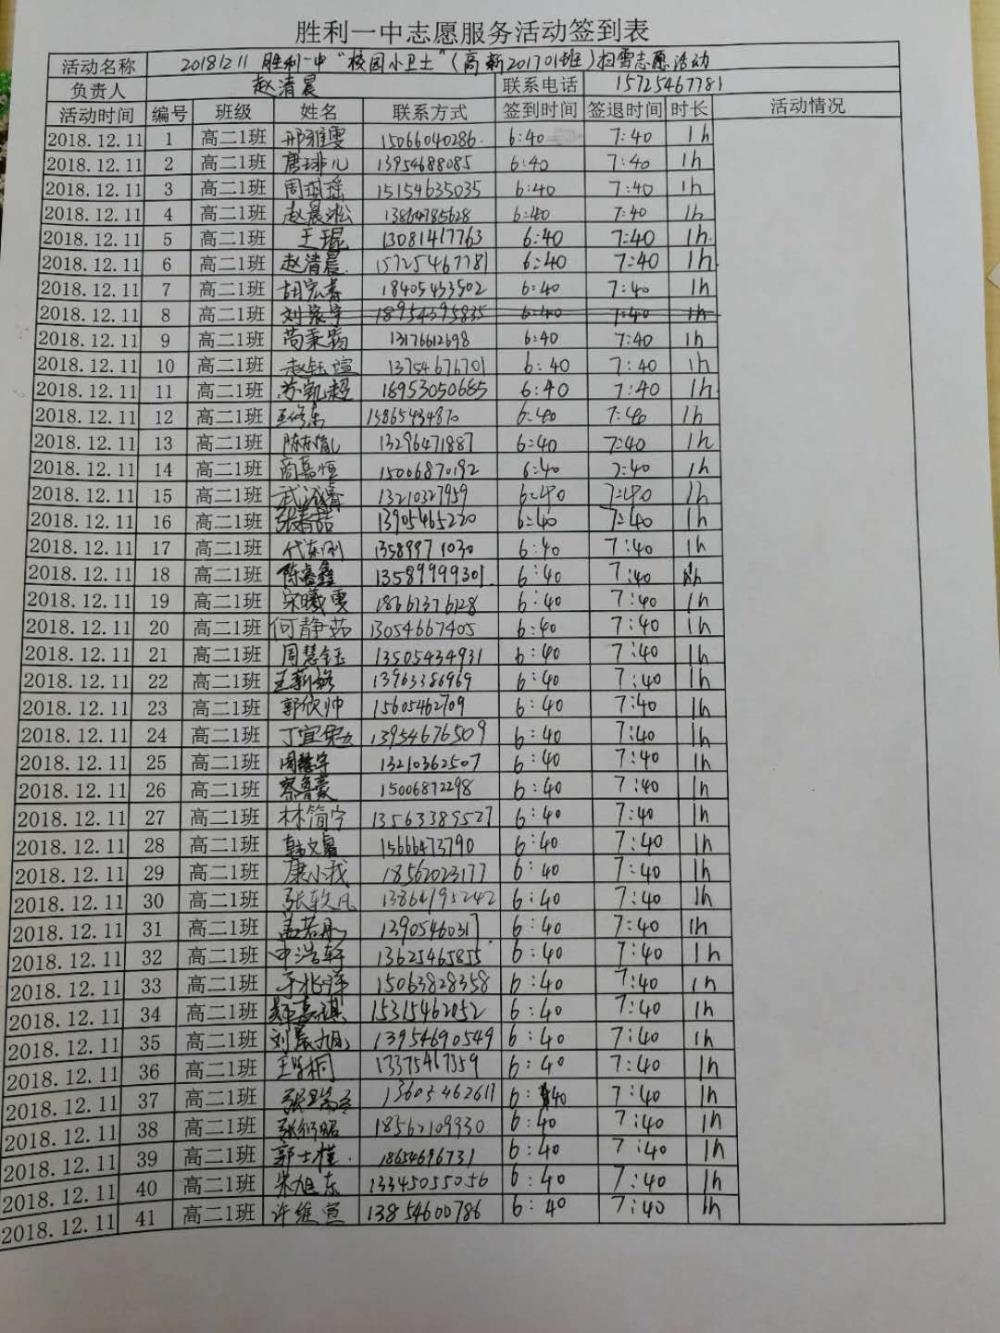 胜利一中志愿服务活动签到表
活动名称 20181211 胜利一中"校园小卫士"(高新201701班)扫雪志愿活动
负责人 赵清晨 联系电话 15725467781
活动时间 编号 班级 姓名 联系方式 签到时间 签退时间 时长 活动情况
2018.12.11 1 高二1班 邢雅雯 15066040286 6:40 7:40 1h
2018.12.11 2 高二1班 唐琲儿 13954688085 6:40 7:40 1h
2018.12.11 3 高二1班 15154635035 6:40 7:40 1h
2018.12.11 4 高二1班 赵晨淞 13864785628 6:40 7:40 1h
2018.12.11 5 高二1班 王琨 13081417763 6:40 7:40 1h
2018.12.11 6 高二1班 赵清晨 15725467781 6:40 7:40 1h
2018.12.11 7 高二1班 18405453502 6:40 7:40 1h
2018.12.11 8 高二1班 刘寰宇 18954395835 6:40 7:40 1h
2018.12.11 9 高二1班 13176612698 6:40 7:40 1h
2018.12.11 10 高二1班 赵钰瑄 13754676701 6:40 7:40 1h
2018.12.11 11 高二1班 苏凯超 18953050685 6:40 7:40 1h
2018.12.11 12 高二1班 王修东 15865434870 6:40 7:40 1h
2018.12.11 13 高二1班 13296471887 6:40 7:40 1h
2018.12.11 14 高二1班 商嘉恒 15006870192 6:40 7:40 1h
2018.12.11 15 高二1班 13210327959 6:40 7:40 1h
2018.12.11 16 高二1班 张春喆 13905465220 6:40 7:40 1h
2018.12.11 17 高二1班 代东刚 13589971030 6:40 7:40 1h
2018.12.11 18 高二1班 陈睿鑫 13589999301 6:40 7:40 1h
2018.12.11 19 高二1班 宋曦雯 18661376128 6:40 7:40 1h
2018.12.11 20 高二1班 何静茹 13054667405 6:40 7:40 1h
2018.12.11 21 高二1班 周慧钰 13505434931 6:40 7:40 1h
2018.12.11 22 高二1班 王新铭 13963386969 6:40 7:40 1h
2018.12.11 23 高二1班 郭欣帅 15605462709 6:40 7:40 1h
2018.12.11 24 高二1班 13954676509 6:40 7:40 1h
2018.12.11 25 高二1班 周慧宇 13210362507 6:40 7:40 1h
2018.12.11 26 高二1班 蔡鲁豪 15006872298 6:40 7:40 1h
2018.12.11 27 高二1班 林简宁 13563389527 6:40 7:40 1h
2018.12.11 28 高二1班 韩文睿 15666473790 6:40 7:40 1h
2018.12.11 29 高二1班 康小我 18562023177 6:40 7:40 1h
2018.12.11 30 高二1班 张轶凡 13864795242 6:40 7:40 1h
2018.12.11 31 高二1班 孟若彤 1390546031 6:40 7:40 1h
2018.12.11 32 高二1班 申浩轩 13625465855 6:40 7:40 1h
2018.12.11 33 高二1班 于兆洋 15063828358 6:40 7:40 1h
2018.12.11 34 高二1班 郑嘉祺 15315462052 6:40 7:40 1h
2018.12.11 35 高二1班 刘晨旭 13954690549 6:40 7:40 1h
2018.12.11 36 高二1班 13375467359 6:40 7:40 1h
2018.12.11 37 高二1班 13605462611 6:40 7:40 1h
2018.12.11 38 高二1班 18562109930 6:40 7:40 1h
2018.12.11 39 高二1班 郭士槿 18654696731 6:40 7:40 1h
2018.12.11 40 高二1班 宋旭东 13345055056 6:40 7:40 1h
2018.12.11 41 高二1班 许维萱 13854600786 6:40 7:40 1h